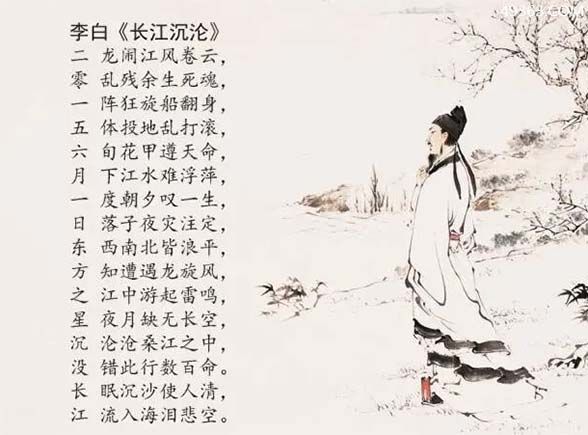 李白《长江沉沦》
二 龙闹江风卷云，
零 乱残余生死魂，
一 阵狂旋船翻身，
五 体投地乱打滚，
六 旬花甲遵天命，
月 下江水难浮萍，
一 度朝夕叹一生，
日 落子夜灾注定，
东 西南北皆浪平，
方 知遭遇龙旋风，
之 江中游起雷鸣，
星 夜月缺无长空，
沉 沦沧桑江之中，
没 错此行数百命。
长 眠沉沙使人清，
江 流入海泪悲空。